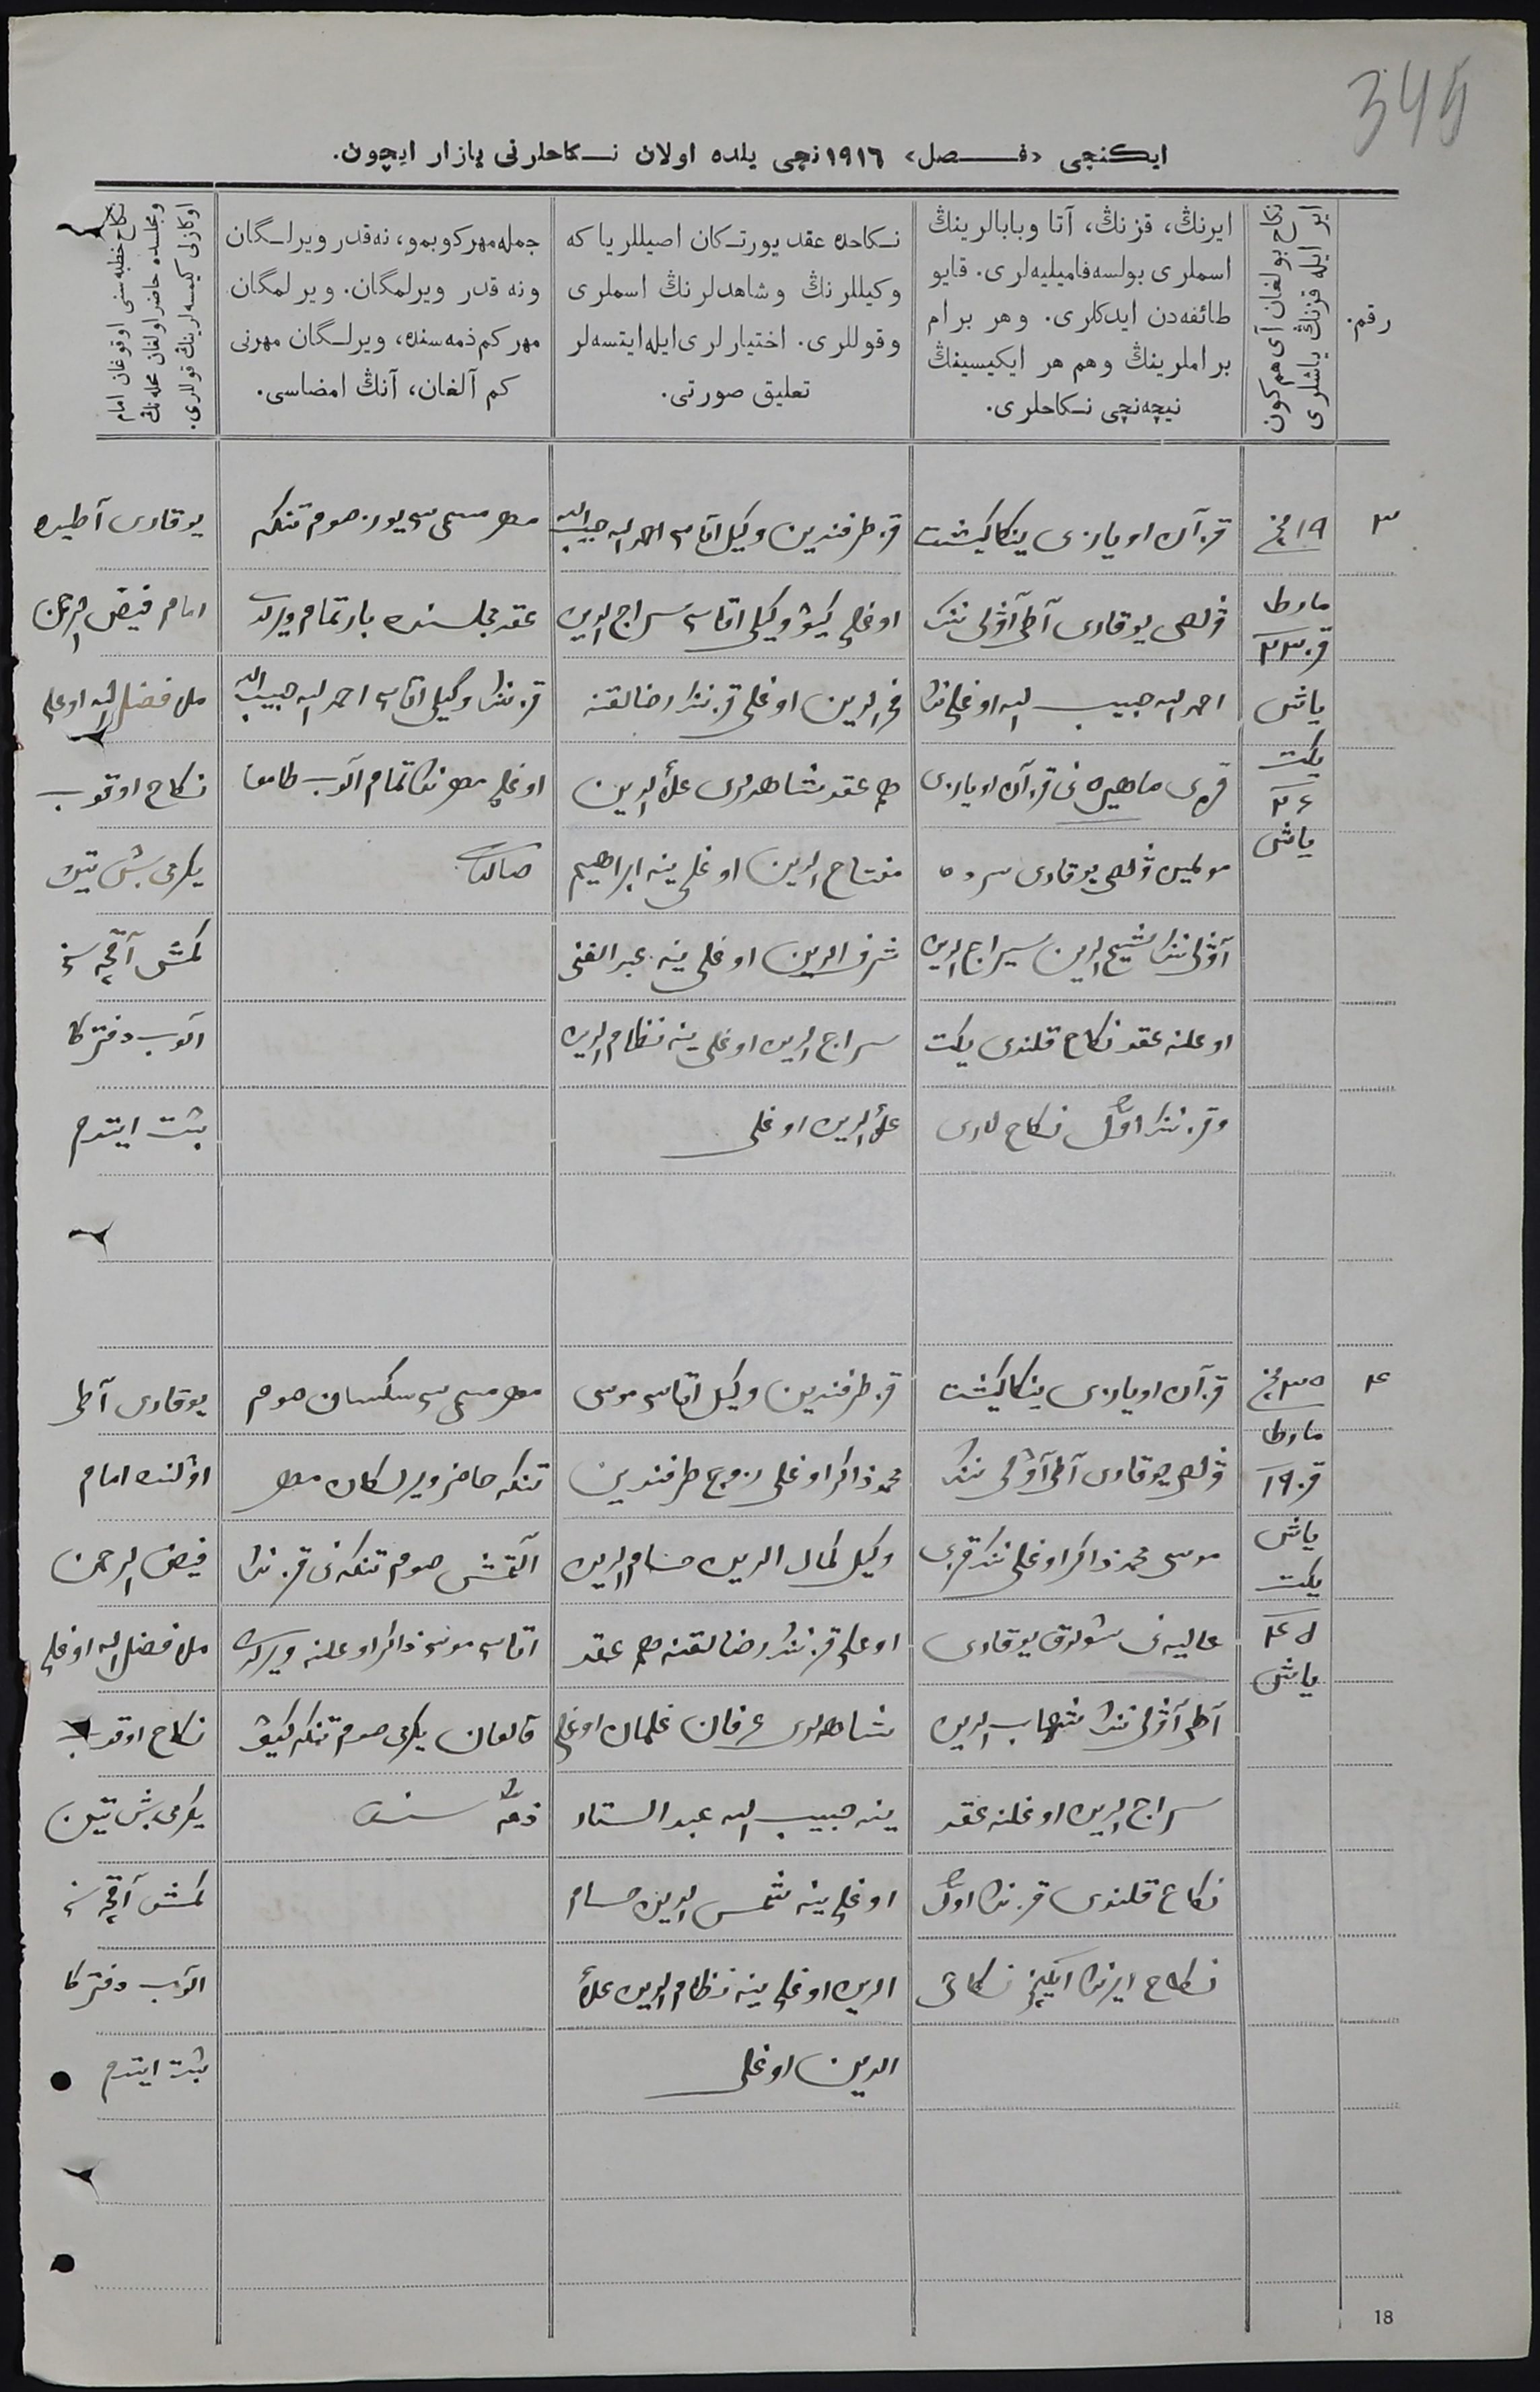 345
ایکنچی «فصل» ١٩١٦ نچی یلده اولان نکاحلرنی یازار ایچون.
رقم.
ایر ایله قزنڭ یاشلری
نکاح بولغان آی هم کون
ایرنڭ، قزنڭ، آتا وبابالرینڭ
اسملری بولسه فامیلیه‌لری. قایو
طائفه‌دن ایدکلری. وهر برام
براملرینڭ وهم هر ایکیسینڭ
نیچه‌نچی نکاحلری.
نکاحده عقد یورتکان اصیللر یا که
وکیللرنڭ وشاهدلرنڭ اسملری
وقوللری. اختیارلری ایله ایتسه‌لر
تعلیق صورتی.
جمله مهر کوبمو، نه‌قدر ویرلگان
ونه قدر ویرلمگان. ویرلمگان
مهر کم ذمه‌سنده، ویرلگان مهرنی
کم آلغان، آنڭ امضاسی.
نکاح خطبه‌سنی اوقوغان امام
ومجلسده حاضر اولغان محله‌نڭ
اوکازلی کیمسه‌لرینڭ قوللری.
٣
١٩ نچی
مارط
قز ٢٣
یاش
یکت
٢٤
یاش
قزآن اویازی ینکاکیشت
ولصی یوقاری آطی آولی ننک
احمدالله حبیب الله اوغلی ننک
قزی ماهیره نی قزآن اویازی
ولصی یوقاری سرده
آولی ننک شیخ الدین سراج الدین
اوغلنه عقد نکاح قلندی یکت
وقز ننک اول نکاح لاری
قز طرفندین وکیل اتاسی احمدالله حبیب الله
اوغلی کیو وکیلی اتاسی سراج الدین
فخرالدین اوغلی قز ننک رضالقنه
هم عقد شاهدلری علاءالدین
مفتاح الدین اوغلی ینه ابراهیم
شرف الدین اوغلی ینه عبدالغنی
سراج الدین اوغلی ینه نظام الدین
علاءالدین اوغلی
مهر مسمی سی یوز صوم تنکه
عقد مجلسنده بار تمام ویرلدی
قز ننک وکیلی اتاسی احمدالله حبیب الله
اوغلی مهر ننک تمام آلوب
یوقاری آطیده
امام فیض الرحمن
ملا فضل الله اوغلی
نکاح اوقوب
یکرمی بش تین
کمش آقچه سن
آلوب دفترکا
ثبت ایتدم
٤
٢٥ نچی
مارط
قز ١٩
یاش
یکت
٤٥
یاش
قزآن اویازی ینکاکیشت
ولصی یوقاری آطی آولی ننک
موسی محمدذاکر اوغلی ننک قزی
عالیه نی شولوق یوقاری
آطی آولی ننک شهاب الدین
سراج الدین اوغلنه عقد
نکاح قلندی قز ننک اول
نکاح ایرننک ایکنچی نکاحی
قز طرفندین وکیل اتاسی موسی
محمدذاکر اوغلی زوج طرفندین
وکیل کمال الدین حسام الدین
اوغلی قز ننک رضالقنه هم عقد
شاهدلری عرفان غلمان اوغلی
ینه حبیب الله عبدالستار
اوغلی ینه شمس الدین حسام
الدین اوغلی ینه نظام الدین علاء
الدین اوغلی
مهر مسمی سی سکسان صوم
تنکه حاضر ویرلکان مهر
آلتمش صوم تنکه نی قز ننک
اتاسی موسی ذاکر اوغلنه ویرلدی
قالغان یکرمی صوم تنکه کیو
ذمه سنده
یوقاری آطی
اولنده امام
فیض الرحمن
ملا فضل الله اوغلی
نکاح اوقوب
یکرمی بش تین
کمش آقچه سن
آلوب دفترکا
ثبت ایتدم
18